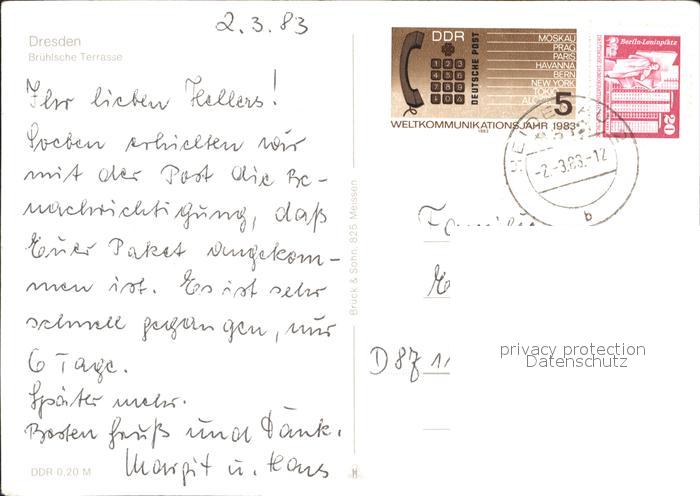 2.3.83
Dresden
Brühlsche Terrasse
Ihr lieben Hellers!
Soeben erhielten wir
mit der Post die Be-
nachrichtigung, daß
Euer Paket angekom-
men ist. Es ist sehr
schnell gegangen, nur
6 Tage.
Später mehr.
Besten Gruß und Dank.
Margit u. Hans
DDR 0,20 M
Brück & Sohn, 825 Meissen
DDR
DEUTSCHE POST
MOSKAU
PRAG
PARIS
HAVANNA
BERN
NEW YORK
TOKIO
5
WELTKOMMUNIKATIONSJAHR 1983
1983
Berlin-Leninplatz
20
-2.-3.83.-12
b
D 87
privacy protection
Datenschutz